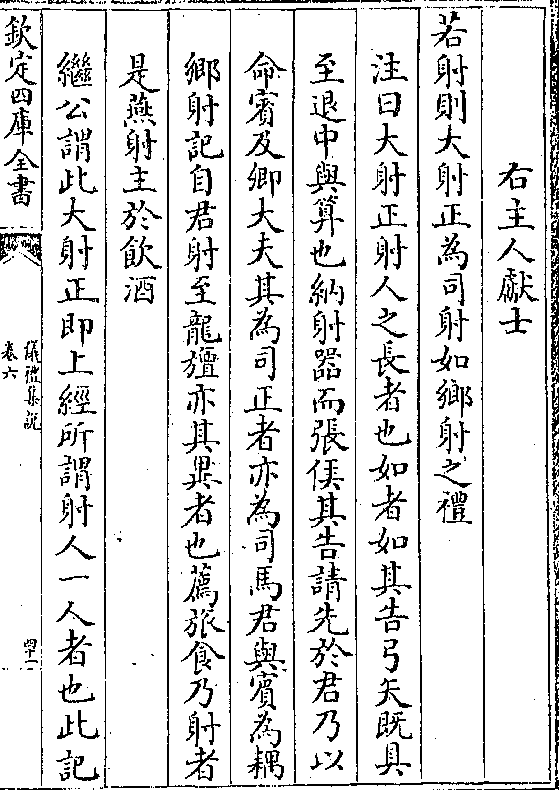 右主人獻士
若射則大射正為司射如鄉射之禮
注曰大射正射人之長者也如者如其告弓矢既具
至退中與算也納射器而張侯其告請先於君乃以
命賓及卿大夫其為司正者亦為司馬君與賓為耦
鄉射記自君射至龍旜亦其異者也薦旅食乃射者
是燕射主於飲酒
繼公謂此大射正即上經所謂射人一人者也此記
欽定四庫全書
儀禮集說
卷六